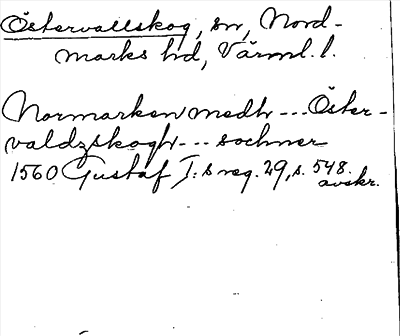 Östervallskog, sn, Nord-
marks hd, Värml. l.
Normarken medh --- Öster-
valdzskogh --- sochner
1560 Gustaf I:s reg. 29, s. 548.
avskr.